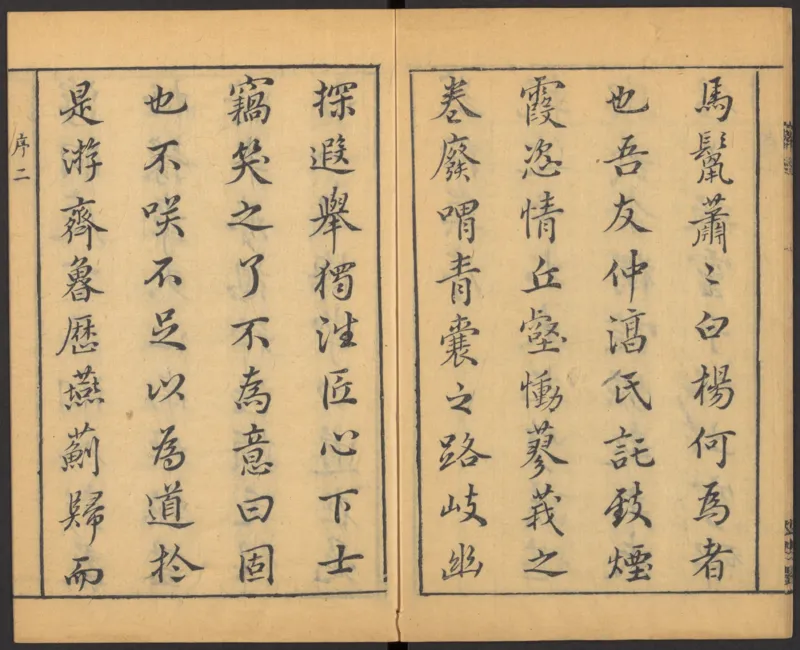 馬鬣蕭〻白楊何為者
也吾友仲濤氏託致煙
霞恣情丘壑慟蓼莪之
巻廢喟青囊之路岐幽
探遐舉獨注匠心下士
竊笑之了不為意曰固
也不咲不足以為道於
是游齊魯歷燕薊歸而
序二